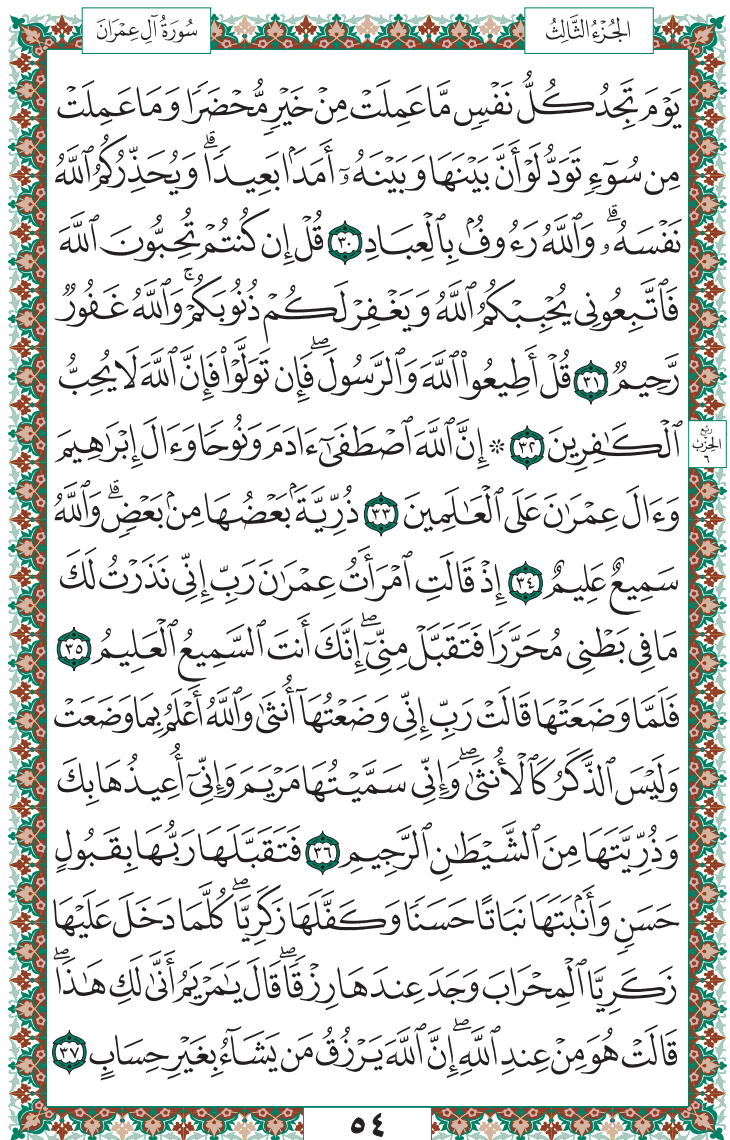 الجُزْءُ الثَّالِثُ
سُورَةُ آلِ عِمْرَانَ
يَوْمَ تَجِدُ كُلُّ نَفْسٖ مَّا عَمِلَتْ مِنْ خَيْرٖ مُّحْضَرٗا وَمَا عَمِلَتْ
مِن سُوٓءٖ تَوَدُّ لَوْ أَنَّ بَيْنَهَا وَبَيْنَهُۥٓ أَمَدَۢا بَعِيدٗاۗ وَيُحَذِّرُكُمُ ٱللَّهُ
نَفْسَهُۥۗ وَٱللَّهُ رَءُوفُۢ بِٱلْعِبَادِ ٣٠ قُلْ إِن كُنتُمْ تُحِبُّونَ ٱللَّهَ
فَٱتَّبِعُونِى يُحْبِبْكُمُ ٱللَّهُ وَيَغْفِرْ لَكُمْ ذُنُوبَكُمْۚ وَٱللَّهُ غَفُورٞ
رَّحِيمٞ ٣١ قُلْ أَطِيعُوا۟ ٱللَّهَ وَٱلرَّسُولَۖ فَإِن تَوَلَّوْا۟ فَإِنَّ ٱللَّهَ لَا يُحِبُّ
ٱلْكَـٰفِرِينَ ٣٢ ۞ إِنَّ ٱللَّهَ ٱصْطَفَىٰٓ ءَادَمَ وَنُوحٗا وَءَالَ إِبْرَٰهِيمَ
رُبْعُ
الحِزْبِ
٦
وَءَالَ عِمْرَٰنَ عَلَى ٱلْعَـٰلَمِينَ ٣٣ ذُرِّيَّةَۢ بَعْضُهَا مِنۢ بَعْضٖۗ وَٱللَّهُ
سَمِيعٌ عَلِيمٌ ٣٤ إِذْ قَالَتِ ٱمْرَأَتُ عِمْرَٰنَ رَبِّ إِنِّى نَذَرْتُ لَكَ
مَا فِى بَطْنِى مُحَرَّرٗا فَتَقَبَّلْ مِنِّىٓۖ إِنَّكَ أَنتَ ٱلسَّمِيعُ ٱلْعَلِيمُ ٣٥
فَلَمَّا وَضَعَتْهَا قَالَتْ رَبِّ إِنِّى وَضَعْتُهَآ أُنثَىٰ وَٱللَّهُ أَعْلَمُ بِمَا وَضَعَتْ
وَلَيْسَ ٱلذَّكَرُ كَٱلْأُنثَىٰۖ وَإِنِّى سَمَّيْتُهَا مَرْيَمَ وَإِنِّىٓ أُعِيذُهَا بِكَ
وَذُرِّيَّتَهَا مِنَ ٱلشَّيْطَـٰنِ ٱلرَّجِيمِ ٣٦ فَتَقَبَّلَهَا رَبُّهَا بِقَبُولٍ
حَسَنٖ وَأَنۢبَتَهَا نَبَاتًا حَسَنٗا وَكَفَّلَهَا زَكَرِيَّاۖ كُلَّمَا دَخَلَ عَلَيْهَا
زَكَرِيَّا ٱلْمِحْرَابَ وَجَدَ عِندَهَا رِزْقٗاۖ قَالَ يَـٰمَرْيَمُ أَنَّىٰ لَكِ هَـٰذَاۖ
قَالَتْ هُوَ مِنْ عِندِ ٱللَّهِۖ إِنَّ ٱللَّهَ يَرْزُقُ مَن يَشَآءُ بِغَيْرِ حِسَابٍ ٣٧
٥٤